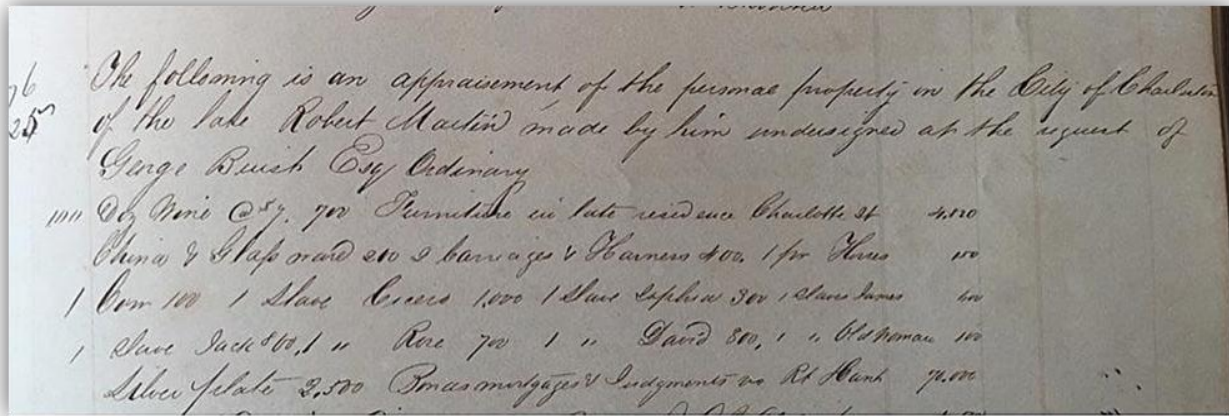 The following is an appraisement of the personal property in the City of Charleston
of the late Robert Martin made by him undersigned at the request of
George Buist Esqr Ordinary
100 Doz Wine @ $7. 700 Furniture in late residence Charlotte St
China & Glass ward 200 2 Carriages & Harness 400. 1 pr Horses
1 Cow 100 1 Slave Cicero 1,000 1 Slave Sophia 300 1 Slave James
1 Slave Jack 1 " Rose 700 1 " David 800, 1 " Old Woman 100
Silver plate 2,500 Bonds mortgages & Judgments Rt Hunt